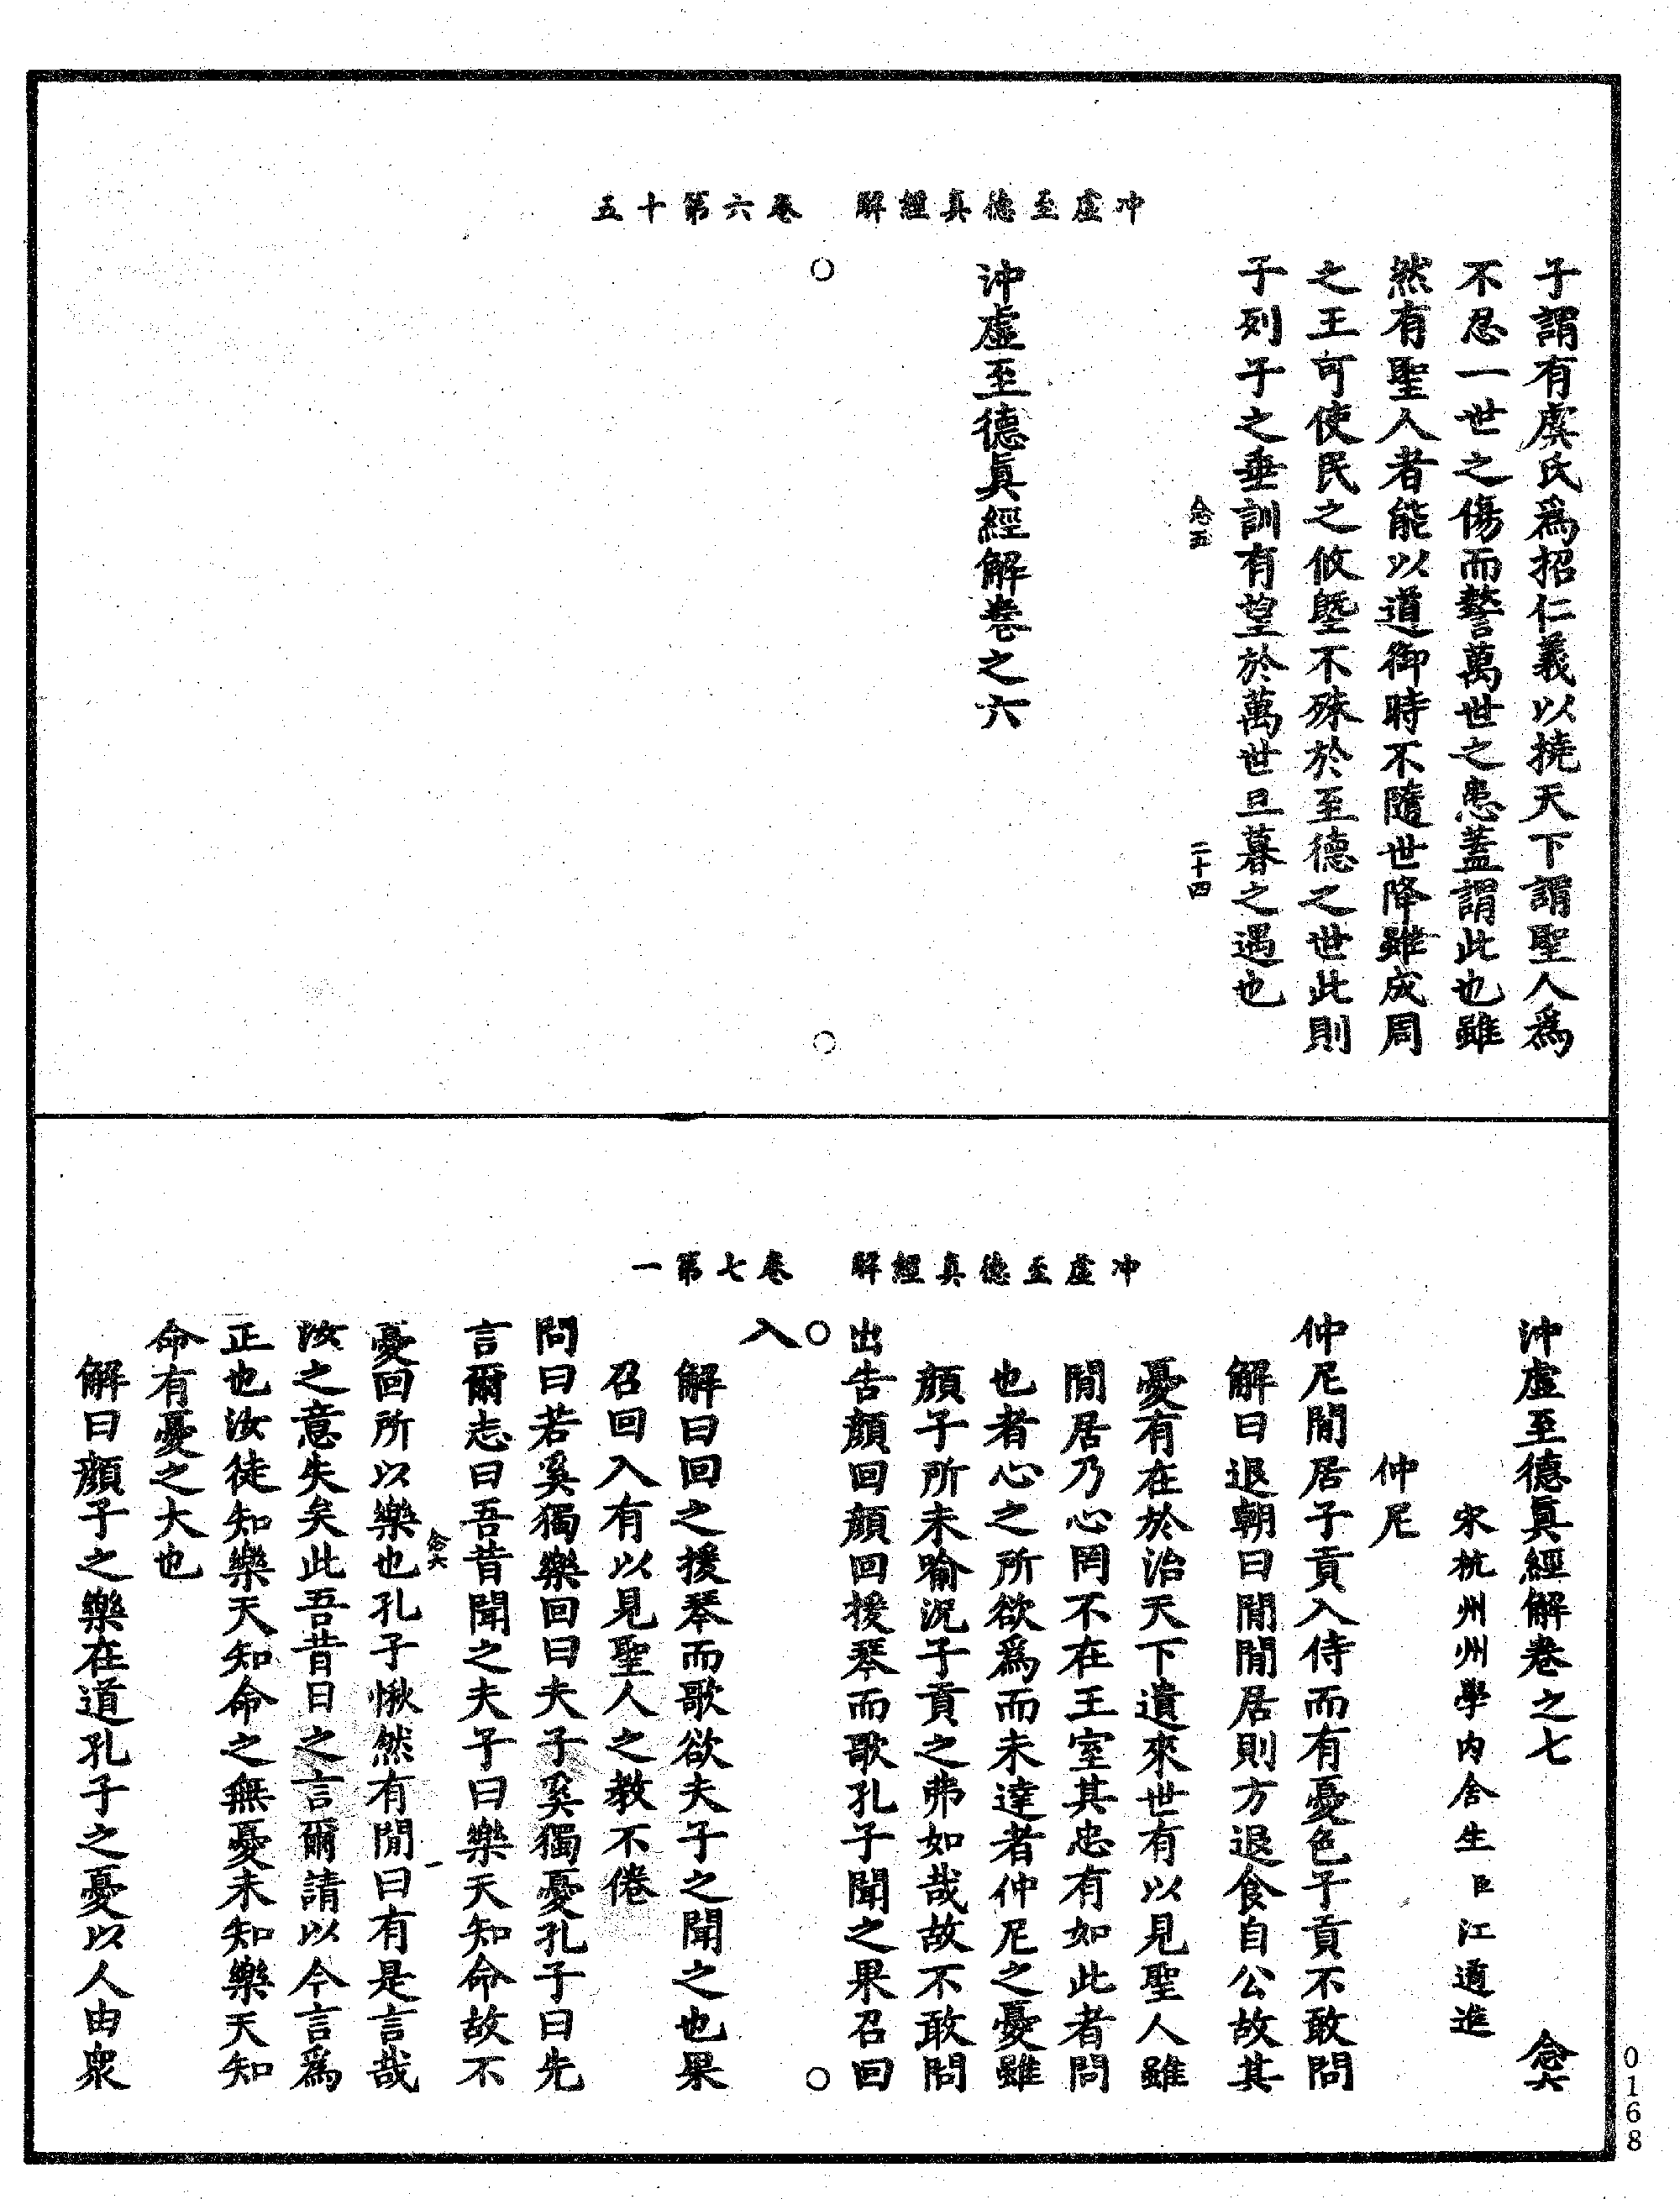 冲虛至德真經解　卷六第十五
子謂有虞氏爲招仁義以撓天下謂聖人爲
不忍一世之傷而驁萬世之患蓋謂此也雖
然有聖人者能以道御時不隨世降雖成周
之王可使民之攸塈不殊於至德之世此則
子列子之垂訓有望於萬世旦暮之遇也
念五　二十四
沖虛至德真經解卷之六
冲虛至德真經解　卷七第一
沖虛至德真經解卷之七　念六
宋杭州州學內舍生臣江遹進
仲尼
仲尼閒居子貢入侍而有憂色子貢不敢問
解曰退朝曰閒閒居則方退食自公故其
憂有在於治天下遺來世有以見聖人雖
閒居乃心罔不在王室其忠有如此者問
也者心之所欲爲而未達者仲尼之憂雖
顏子所未喻況子貢之弗如哉故不敢問
出告顏回顏回援琴而歌孔子聞之果召回
入
解曰回之援琴而歌欲夫子之聞之也果
召回入有以見聖人之教不倦
問曰若奚獨樂回曰夫子奚獨憂孔子曰先
言爾志曰吾昔聞之夫子曰樂天知命故不
念六　一
憂回所以樂也孔子愀然有閒曰有是言哉
汝之意失矣此吾昔日之言爾請以今言爲
正也汝徒知樂天知命之無憂未知樂天知
命有憂之大也
解曰顏子之樂在道孔子之憂以人由衆
0168